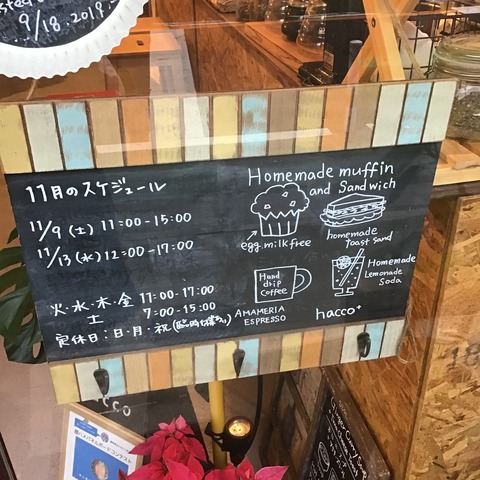 9/18.2019
11月のスケジュール
11/9(土) 11:00-15:00
11/13(水) 12:00-17:00
火・水・木・金 11:00-17:00
土 7:00-15:00
定休日:日・月・祝
Homemade muffin
and Sandwich
egg.milk free
homemade
toast sand
Hand
drip
coffee
AMAMERIA
ESPRESSO
Homemade
Lemonade
Soda
hacco